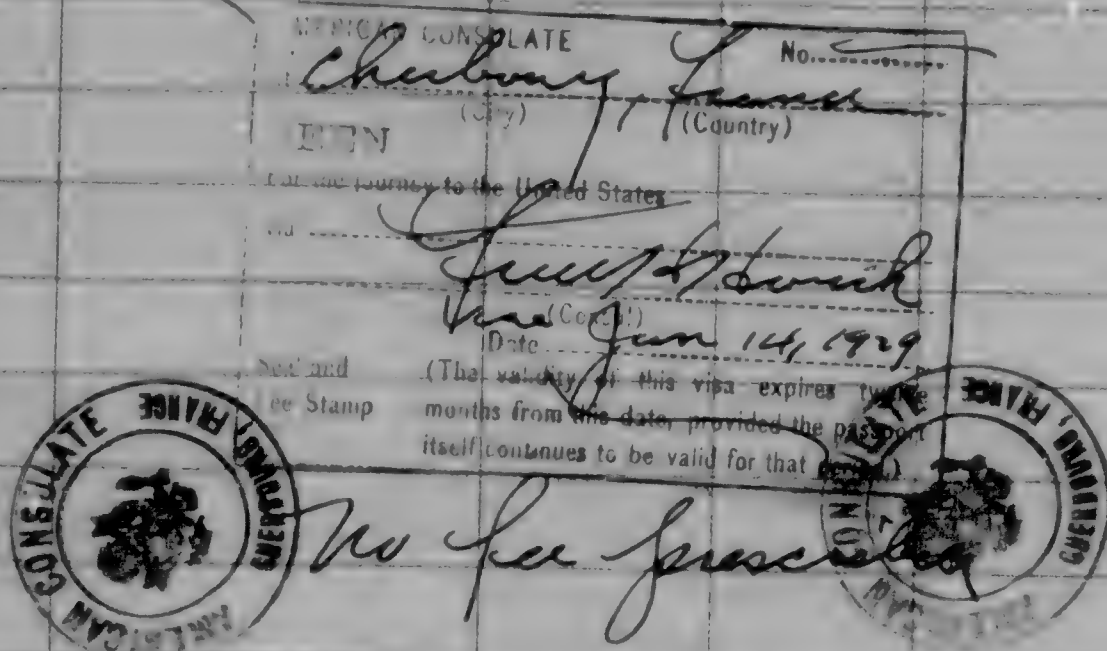 AMERICAN CONSULATE No.
Cherbourg, France
(City) (Country)
SEEN
For the journey to the United States
(Consul)
Vice
Date Jun 14, 1929
Seal and (The validity of this visa expires twelve
Fee Stamp months from this date, provided the passport
itself continues to be valid for that period.)
No fee prescribed
AMERICAN CONSULATE CHERBOURG, FRANCE
AMERICAN CONSULATE CHERBOURG, FRANCE